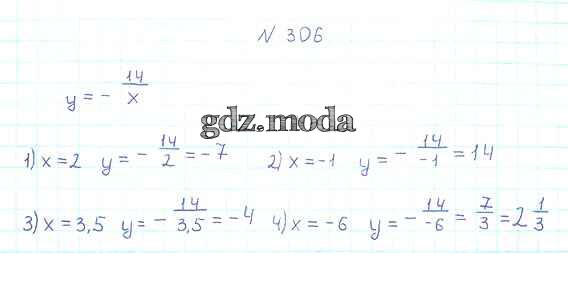 № 306
y = - 14/x
gdz.moda
1) x = 2 y = - 14/2 = -7 2) x = -1 y = - 14/-1 = 14
3) x = 3,5 y = - 14/3,5 = -4 4) x = -6 y = - 14/-6 = 7/3 = 2 1/3